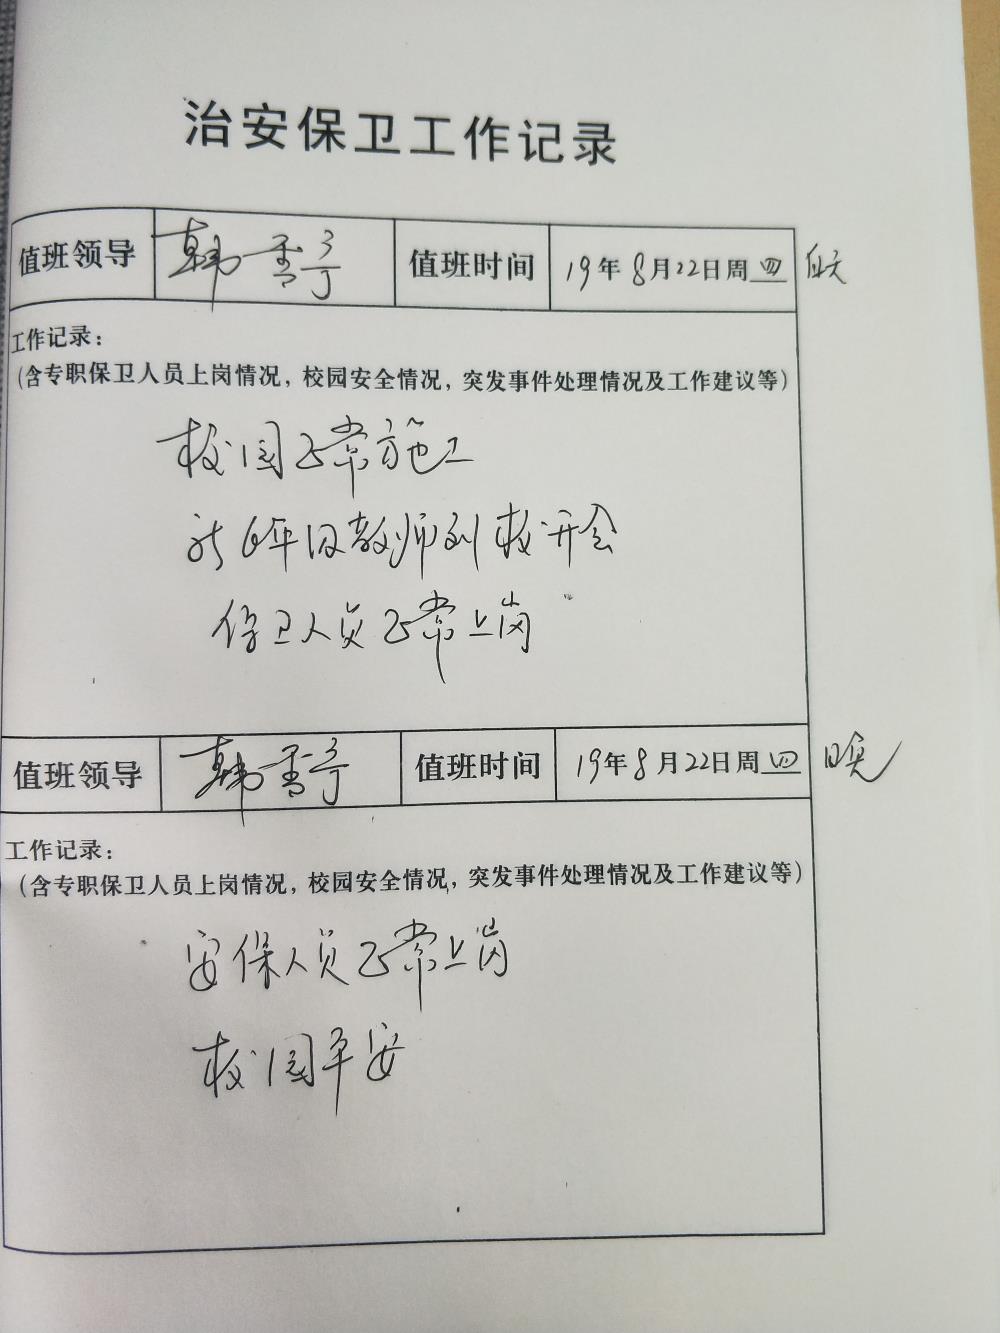 治安保卫工作记录
值班领导 韩 值班时间 19年8月22日周四 白天
工作记录：
（含专职保卫人员上岗情况，校园安全情况，突发事件处理情况及工作建议等）
校园正常施工
新6年级教师到校开会
保卫人员正常上岗
值班领导 韩 值班时间 19年8月22日周四 晚
工作记录：
（含专职保卫人员上岗情况，校园安全情况，突发事件处理情况及工作建议等）
安保人员正常上岗
校园平安